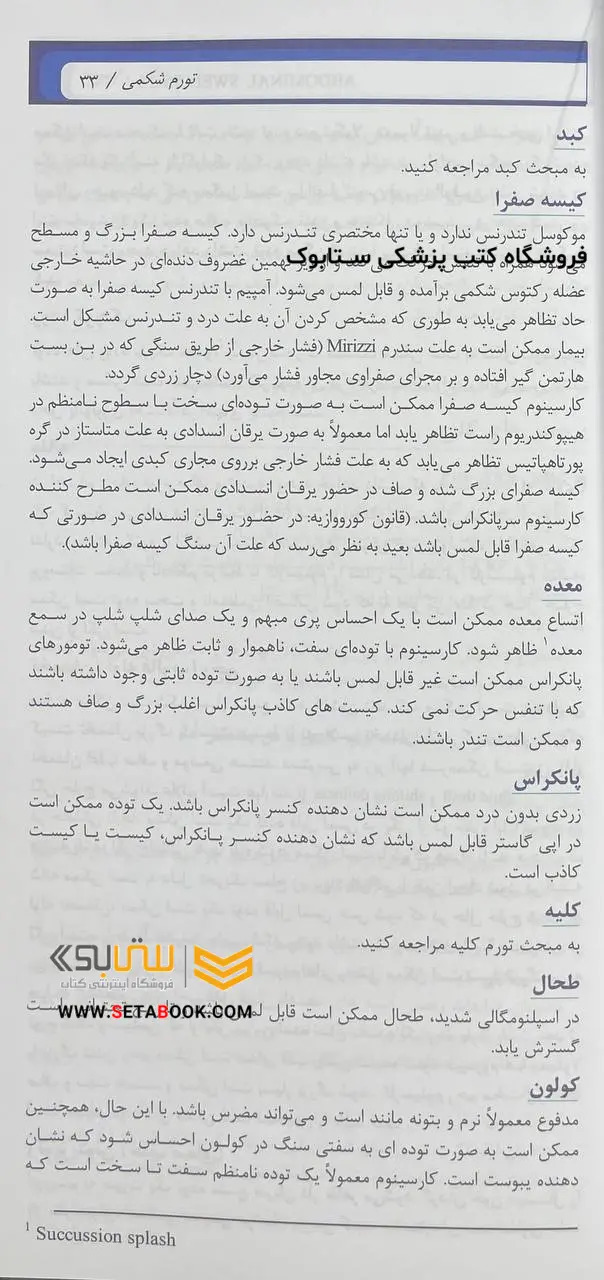 تورم شکمی / ۳۳
کبد
به مبحث کبد مراجعه کنید.
کیسه صفرا
موکوسل تندرنس ندارد و یا تنها مختصری تندرنس دارد. کیسه صفرا بزرگ و مسطح
فروشگاه کتب پزشکی ستابوک
عضله رکتوس شکمی برآمده و قابل لمس می‌شود. آمپیم با تندرنس کیسه صفرا به صورت
حاد تظاهر می‌یابد به طوری که مشخص کردن آن به علت درد و تندرنس مشکل است.
بیمار ممکن است به علت سندرم Mirizzi (فشار خارجی از طریق سنگی که در بن بست
هارتمن گیر افتاده و بر مجرای صفراوی مجاور فشار می‌آورد) دچار زردی گردد.
کارسینوم کیسه صفرا ممکن است به صورت توده‌ای سخت با سطوح نامنظم در
هیپوکندریوم راست تظاهر یابد اما معمولاً به صورت یرقان انسدادی به علت متاستاز در گره
پورتاهپاتیس تظاهر می‌یابد که به علت فشار خارجی برروی مجاری کبدی ایجاد می‌شود.
کیسه صفرای بزرگ شده و صاف در حضور یرقان انسدادی ممکن است مطرح کننده
کارسینوم سرپانکراس باشد. (قانون کوروواز‌یه: در حضور یرقان انسدادی در صورتی که
کیسه صفرا قابل لمس باشد بعید به نظر می‌رسد که علت آن سنگ کیسه صفرا باشد).
معده
اتساع معده ممکن است با یک احساس پری مبهم و یک صدای شلپ شلپ در سمع
معده¹ ظاهر شود. کارسینوم با توده‌ای سفت، ناهموار و ثابت ظاهر می‌شود. تومورهای
پانکراس ممکن است غیر قابل لمس باشند یا به صورت توده ثابتی وجود داشته باشند
که با تنفس حرکت نمی کند. کیست های کاذب پانکراس اغلب بزرگ و صاف هستند
و ممکن است تندر باشند.
پانکراس
زردی بدون درد ممکن است نشان دهنده کنسر پانکراس باشد. یک توده ممکن است
در اپی گاستر قابل لمس باشد که نشان دهنده کنسر پانکراس، کیست یا کیست
کاذب است.
کلیه
به مبحث تورم کلیه مراجعه کنید.
ستابوک
فروشگاه اینترنتی کتاب
WWW.SETABOOK.COM
طحال
در اسپلنومگالی شدید، طحال ممکن است قابل لمس
گسترش یابد.
کولون
مدفوع معمولاً نرم و بتونه مانند است و می‌تواند مضرس باشد. با این حال، همچنین
ممکن است به صورت توده ای به سفتی سنگ در کولون احساس شود که نشان
دهنده یبوست است. کارسینوم معمولاً یک توده نامنظم سفت تا سخت است که
¹ Succussion splash